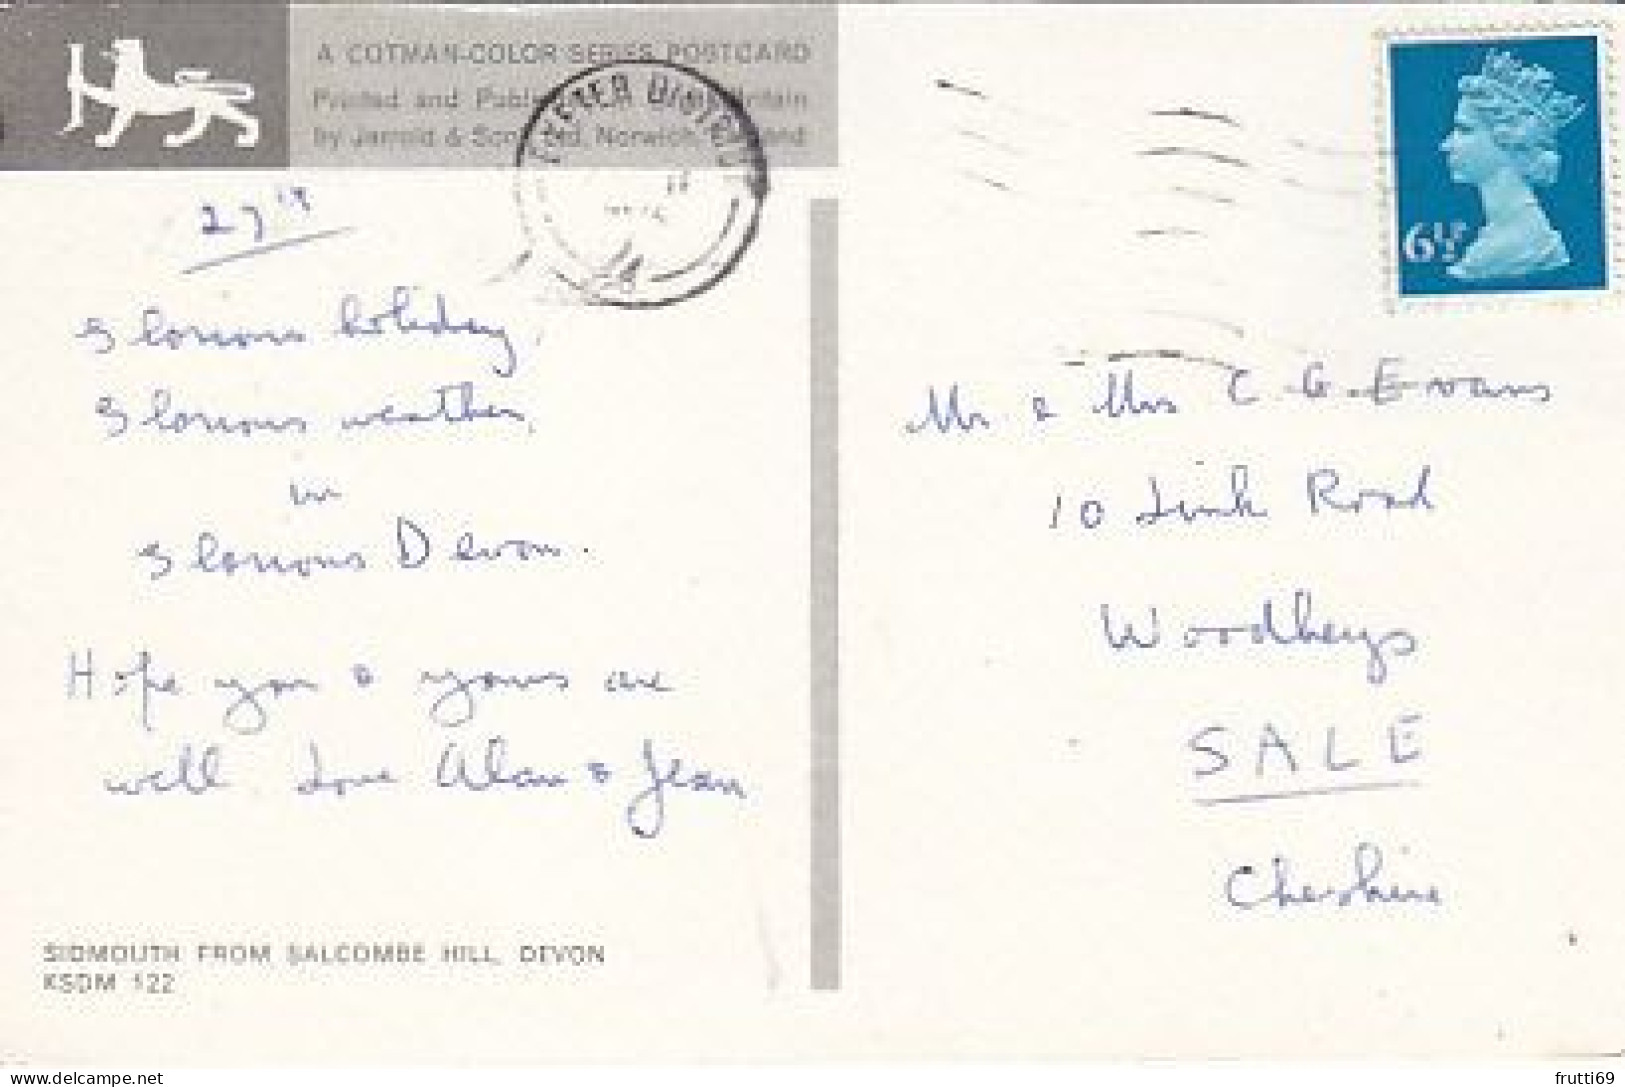 A COTMAN-COLOR SERIES POSTCARD
Printed and Published in Great Britain
by Jarrold & Sons Ltd, Norwich, England
EXETER DISTRICT
6½P
27th
Glorious holiday,
Glorious weather,
in
Glorious Devon.
Hope you & yours are
well. Love Alan & Jean
SIDMOUTH FROM SALCOMBE HILL, DEVON
KSDM 122
Mr & Mrs C G Evans
10 Link Road
Woodheys
SALE
Cheshire
delcampe.net
frutti69